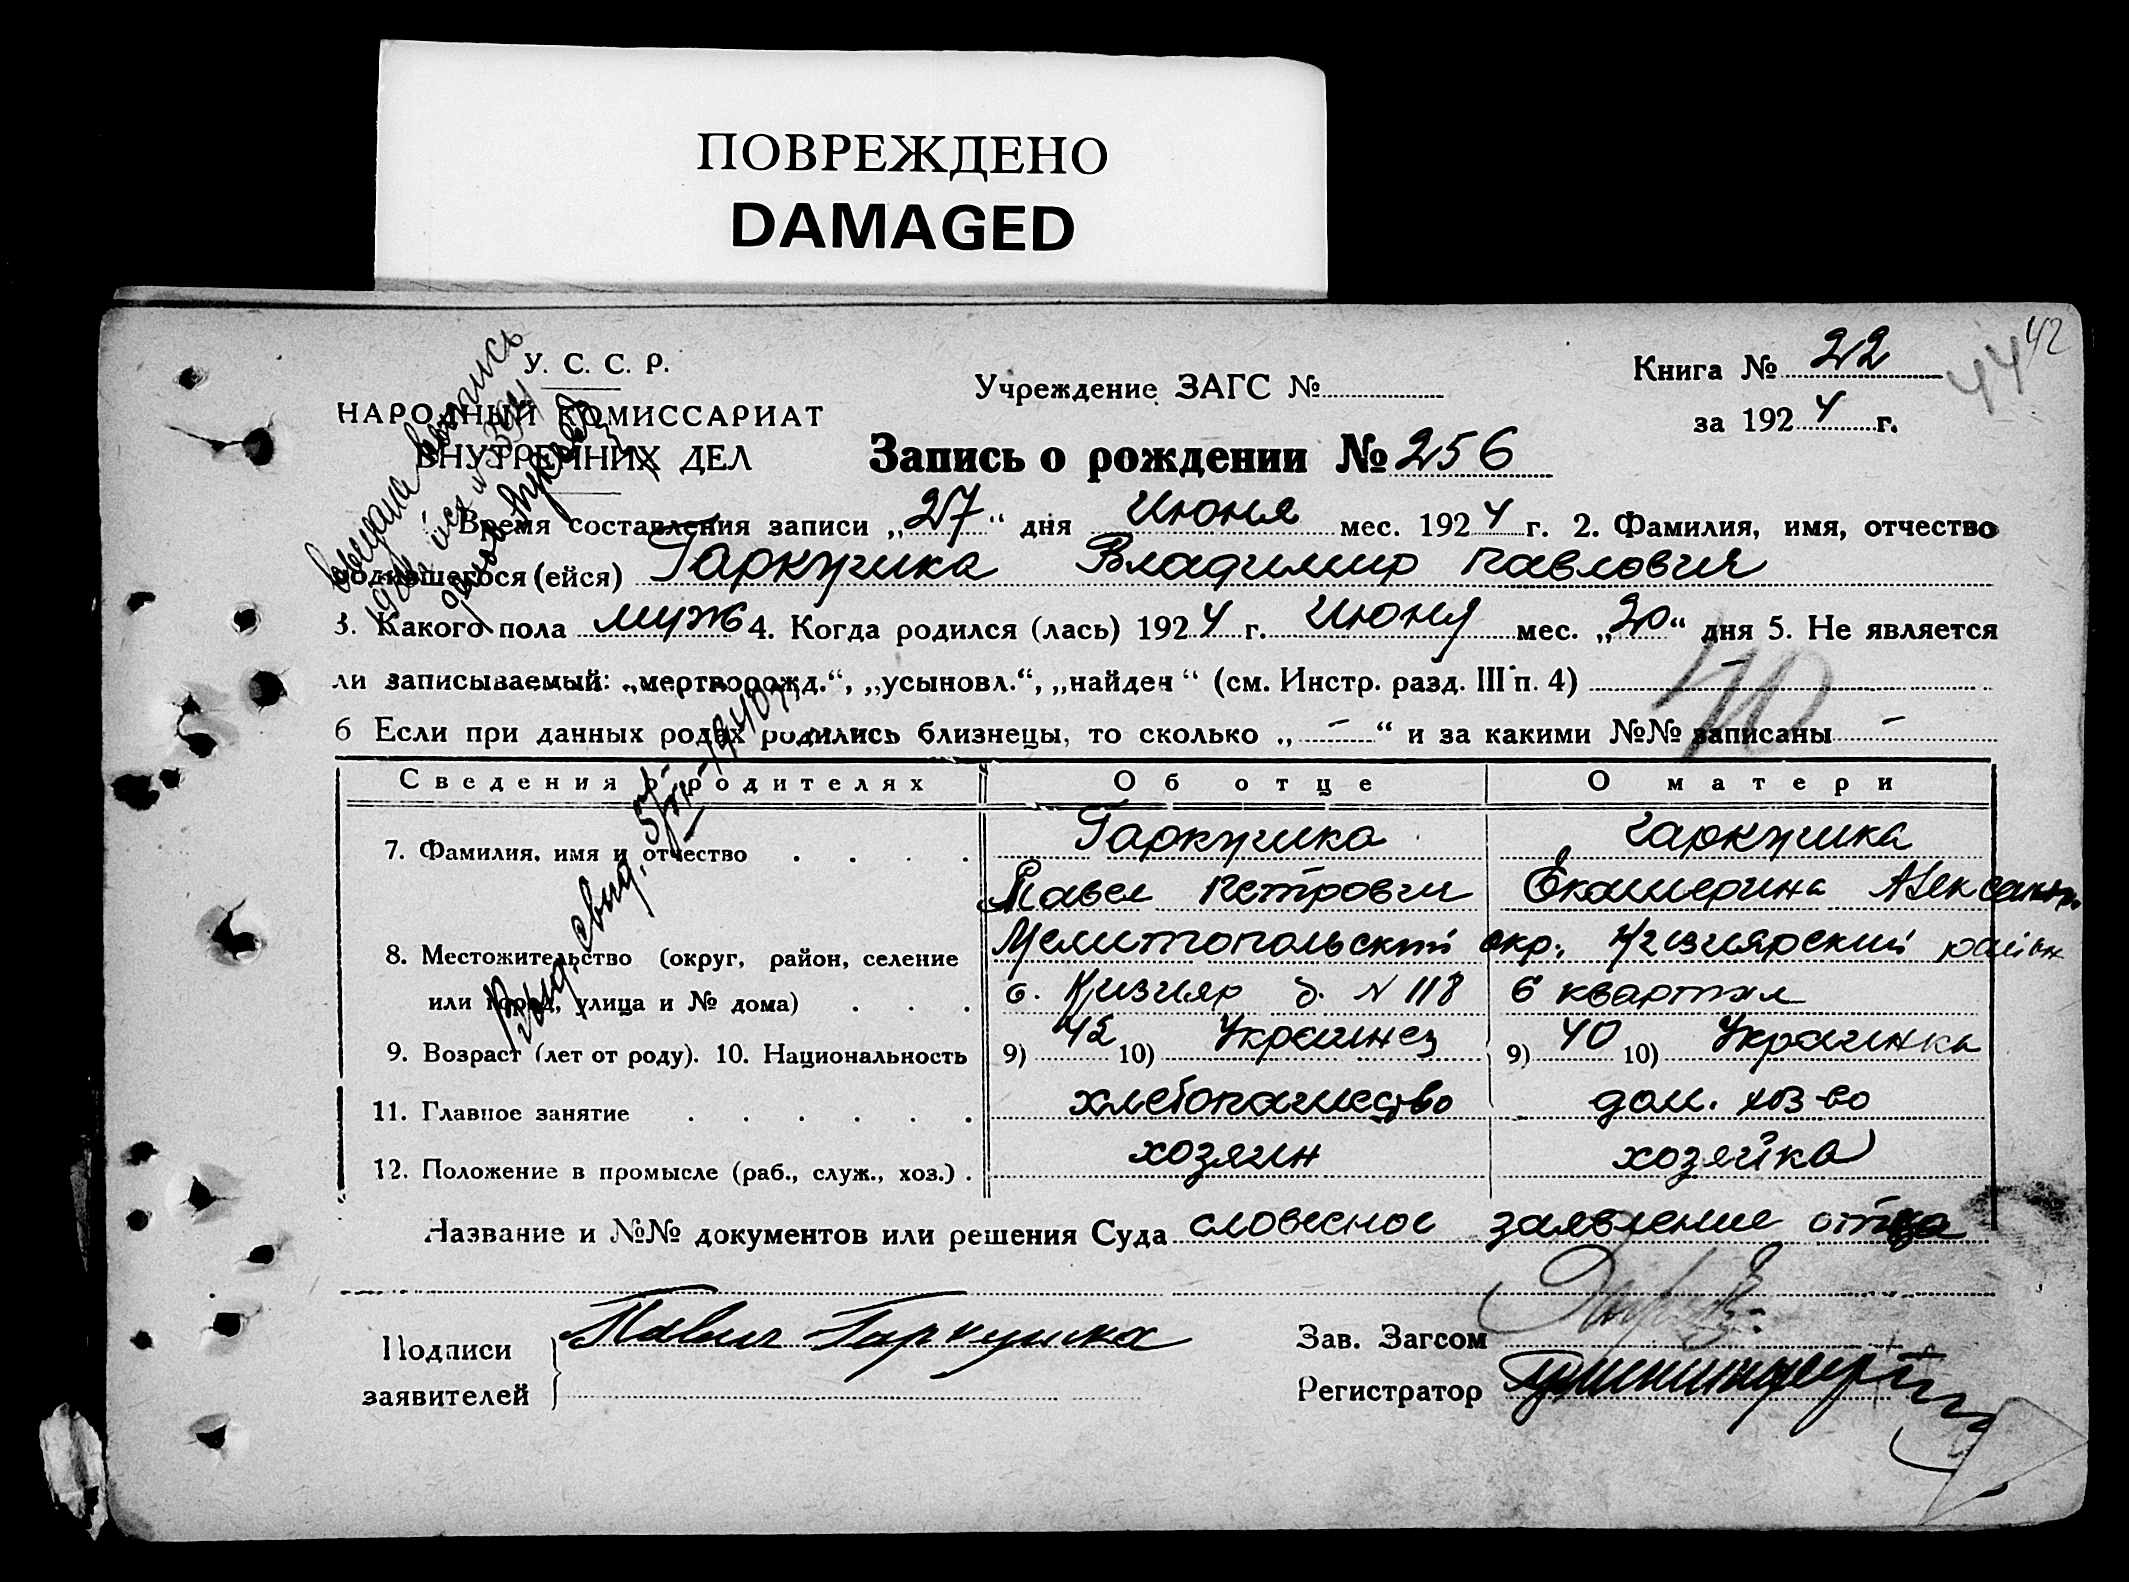 ПОВРЕЖДЕНО
DAMAGED
42
44
У. С. С. Р.
НАРОДНЫЙ КОМИССАРИАТ
ВНУТРЕННИХ ДЕЛ
Учреждение ЗАГС №
Книга № 22
за 1924 г.
Запись о рождении № 256
Время составления записи „27“ дня Июня мес. 1924 г. 2. Фамилия, имя, отчество
родившегося (ейся) Гаркушка Владимир Павлович
3. Какого пола муж 4. Когда родился (лась) 1924 г. Июня мес. „20“ дня 5. Не является
ли записываемый: „мертворожд.“, „усыновл.“, „найден“ (см. Инстр. разд. III п. 4)
6 Если при данных родах родились близнецы, то сколько „ – “ и за какими №№ записаны –
70
Сведения о родителях Об отце О матери
7. Фамилия, имя и отчество Гаркушка Гаркушка
Павел Петрович Екатерина Александр.
8. Местожительство (округ, район, селение Мелитопольский окр., Кизиярский район
или город, улица и № дома) с. Кизияр д. N 118 6 квартал
9. Возраст (лет от роду). 10. Национальность 9) 42 10) Украинец 9) 40 10) Украинка
11. Главное занятие хлебопашество дом. хоз-во
12. Положение в промысле (раб., служ., хоз.) хозяин хозяйка
Название и №№ документов или решения Суда словесное заявление отца
Подписи Павел Гаркушка
заявителей
Зав. Загсом
Регистратор
Выд. свид. 5/III-1940 г.